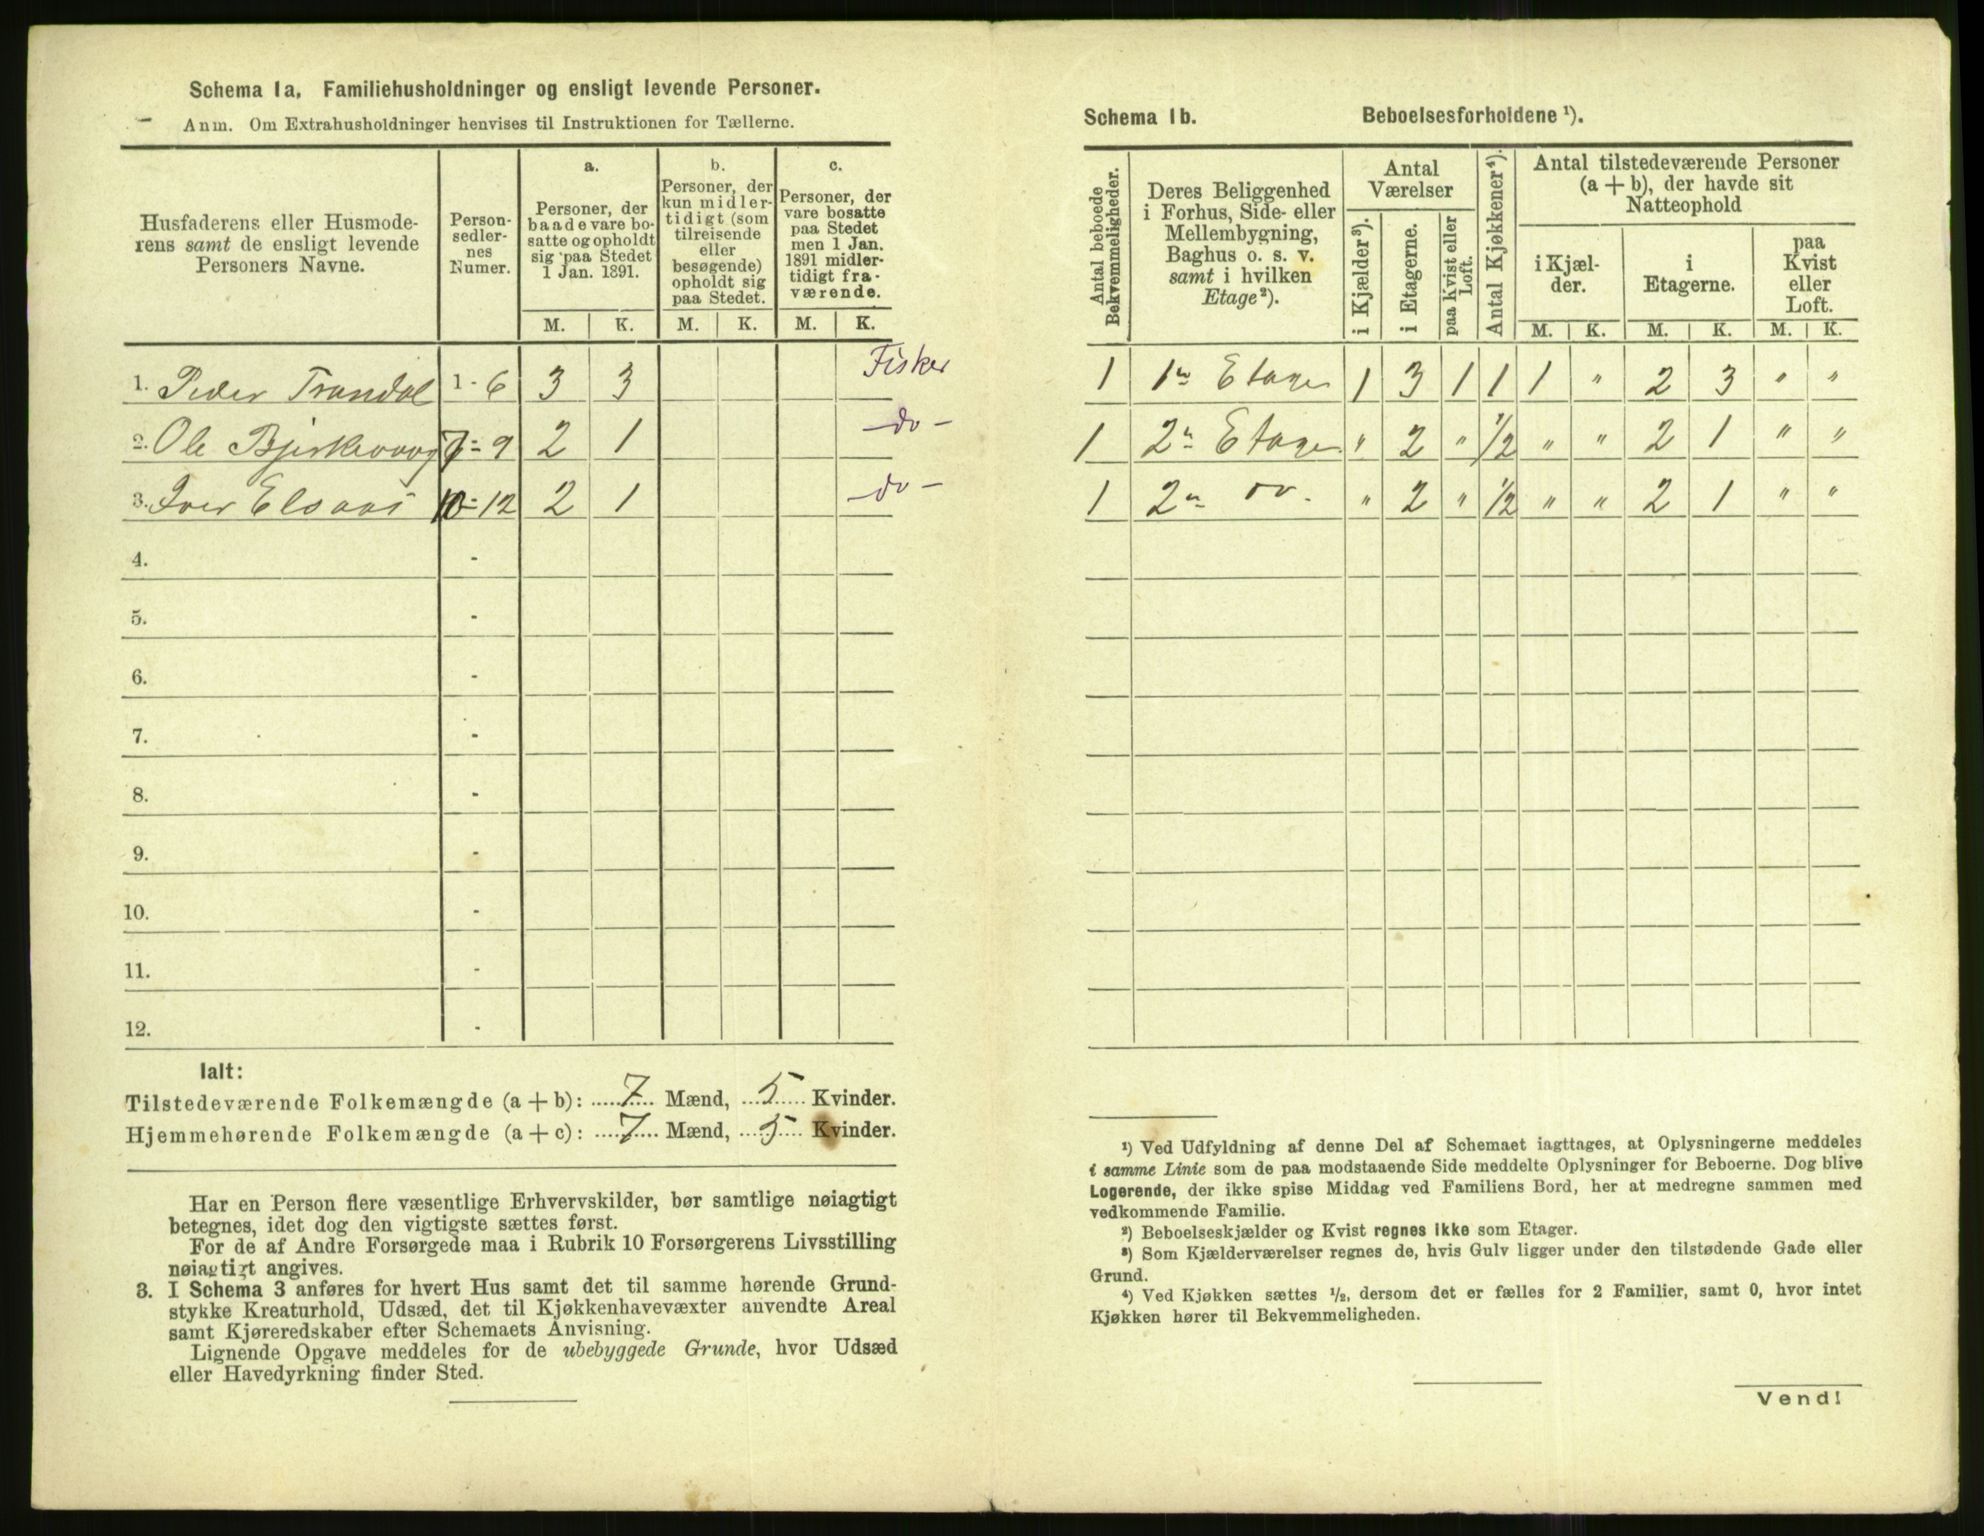 Schema 1a. Familiehusholdninger og ensligt levende Personer.
Anm. Om Extrahusholdninger henvises til Instruktionen for Tællerne.
Husfaderens eller Husmode-
rens samt de ensligt levende
Personers Navne.
Person-
sedler-
nes
Numer.
a.
Personer, der
baade vare bo-
satte og opholdt
sig paa Stedet
1 Jan. 1891.
b.
Personer, der
kun midler-
tidigt (som
tilreisende
eller
besøgende)
opholdt sig
paa Stedet.
c.
Personer, der
vare bosatte
paa Stedet
men 1 Jan.
1891 midler-
tidigt fra-
værende.
M. K. M. K. M. K.
1. Peder Trandal 1 - 6 3 3 Fisker
2. Ole Bjerkevaag 7 - 9 2 1 do -
3. Iver Elsaas 10 - 12 2 1 do -
4. -
5. -
6. -
7. -
8. -
9. -
10. -
11. -
12. -
Ialt:
Tilstedeværende Folkemængde (a + b): 7 Mænd, 5 Kvinder.
Hjemmehørende Folkemængde (a + c): 7 Mænd, 5 Kvinder.
Har en Person flere væsentlige Erhvervskilder, bør samtlige nøiagtigt
betegnes, idet dog den vigtigste sættes først.
For de af Andre Forsørgede maa i Rubrik 10 Forsørgerens Livsstilling
nøiagtigt angives.
3. I Schema 3 anføres for hvert Hus samt det til samme hørende Grund-
stykke Kreaturhold, Udsæd, det til Kjøkkenhavevæxter anvendte Areal
samt Kjøreredskaber efter Schemaets Anvisning.
Lignende Opgave meddeles for de ubebyggede Grunde, hvor Udsæd
eller Havedyrkning finder Sted.
Schema 1b. Beboelsesforholdene ¹).
Antal beboede
Bekvemmeligheder.
Deres Beliggenhed
i Forhus, Side- eller
Mellembygning,
Baghus o. s. v.
samt i hvilken
Etage²).
Antal
Værelser
i Kjælder³).
i Etagerne.
paa Kvist eller
Loft.
Antal Kjøkkener⁴).
Antal tilstedeværende Personer
(a + b), der havde sit
Natteophold
i Kjæl-
der.
i
Etagerne.
paa
Kvist
eller
Loft.
M. K. M. K. M. K.
1 1ⁿ Etage 1 3 1 1 1 " 2 3 " "
1 2ⁿ Etage " 2 " 1/2 " " 2 1 " "
1 2ⁿ do. " 2 " 1/2 " " 2 1 " "
¹) Ved Udfyldning af denne Del af Schemaet iagttages, at Oplysningerne meddeles
i samme Linie som de paa modstaaende Side meddelte Oplysninger for Beboerne. Dog blive
Logerende, der ikke spise Middag ved Familiens Bord, her at medregne sammen med
vedkommende Familie.
²) Beboelseskjælder og Kvist regnes ikke som Etager.
³) Som Kjælderværelser regnes de, hvis Gulv ligger under den tilstødende Gade eller
Grund.
⁴) Ved Kjøkken sættes ¹/₂, dersom det er fælles for 2 Familier, samt 0, hvor intet
Kjøkken hører til Bekvemmeligheden.
Vend!